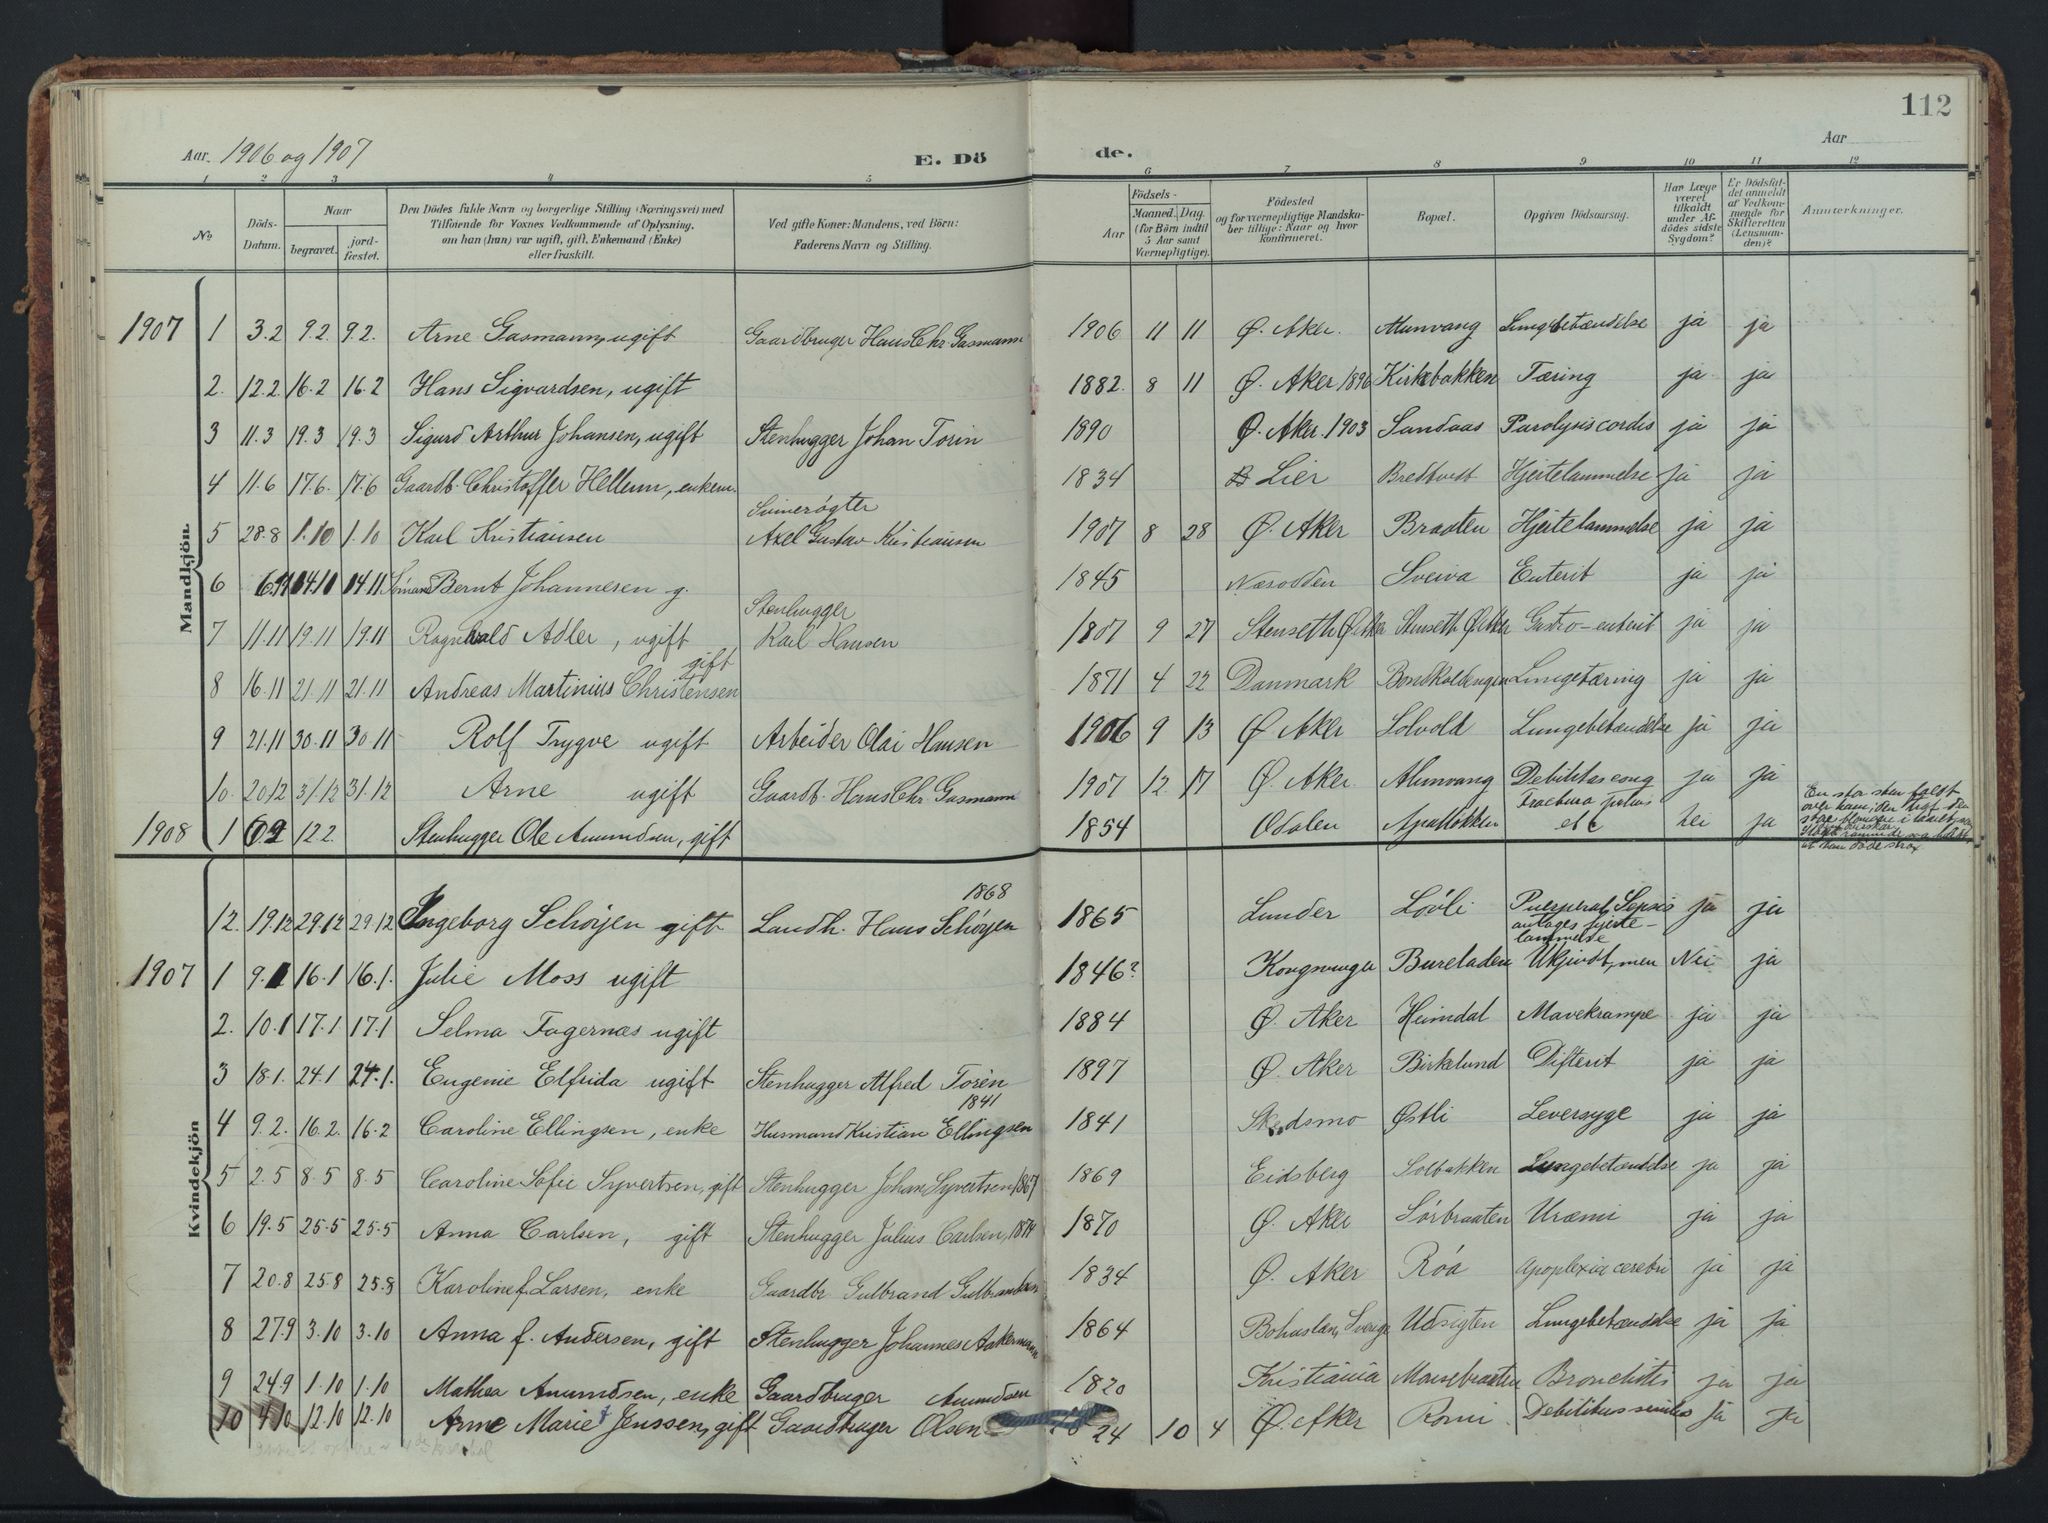 112
Aar. 1906 og 1907 E. Dö de. Aar
1 2 3 4 5 6 7 8 9 10 11 12
No
Döds-Datum.
Naar
begravet.
jord-fæstet.
Den Dödes fulde Navn og borgerlige Stilling (Næringsvei) med
Tilföiende for Voxnes Vedkommende af Oplysning,
om han (hun) var ugift, gift, Enkemand (Enke)
eller fraskilt.
Ved gifte Koner: Mandens, ved Börn:
Faderens Navn og Stilling.
Födsels-
Aar
Maaned. Dag.
(for Börn indtil
5 Aar samt
Værnepligtige).
Födested
og for værnepligtige Mandska-
ber tillige: Naar og hvor
konfirmeret.
Bopæl.
Opgiven Dödsaarsag.
Har Læge
været
tilkaldt
under Af-
dödes sidste
Sygdom?
Er Dödsfal-
det anmeldt
af Vedkom-
mende for
Skifteretten
(Lensman-
den)?
Anmærkninger.
Mandkjön.
1907 1 3.2 9.2 9.2. Arne Gasmann, ugift Gaardbruger Hans Chr. Gasmann 1906 11 11 Ø. Aker. Alunvang Lungebetændelse ja ja
2. 12.2 16.2 16.2 Hans Sigvardsen, ugift 1882. 8 11 Ø. Aker 1896 Kirkebakken Tæring ja ja
3 11.3 19.3 19.3 Sigurd Arthur Johansen, ugift Stenhugger Johan Torin 1890 Ø. Aker. 1903 Sandaas Paralysis cordis ja ja
4 11.6 17.6. 17.6 Gaardb. Christoffer Hellum, enkem. 1834 Lier Bredtvedt Hjertelammelse ja ja
Svinerøgter
5 28.8 1.10 1.10 Karl Kristiansen Axel Gustav Kristiansen 1907 8 28 Ø. Aker Braaten Hjertelammelse ja ja
6 6.11 14.11 14.11 Sömand Bernt Johannesen g. 1845 Næsodden Sveiva Enterit ja ja
Stenhugger
7 11.11 19.11 19.11 Ragnvald Adler, ugift Karl Hansen 1907 9 27 Stenseth Ø. Aker Stenseth Ø. Aker Gastro-enterit ja ja
gift
8 16.11 21.11 21.11 Andreas Martinius Christensen 1871 4 22 Danmark Lungetæring ja ja
9 21.11 30.11 30.11 Rolf Trygve ugift Arbeider Olai Hansen 1906 9 13 Ø Aker Solvold Lungebetændelse ja ja
10. 20.12 31.12 31.12 Arne ugift Gaardb. Hans Chr. Gasmann 1907 12 17 Ø. Aker Alunvang Debilitas cong ja ja
1908 1 6.2 12.2. Stenhugger Ole Amundsen, gift 1854 Odalen Apalløkken Fractura pelvis etc nei ja
En stor sten faldt
over ham, der
Kvindekjön
1868
12. 19.12 29.12 29.12 Ingeborg Schöyen gift Landh. Hans Schöyen 1865 Lunder Lövli Puerperal Sepsis ja ja
antages hjerte-
lammelse
1907 1 9.1 16.1 16.1. Julie Moss ugift 1846? Kongsvinger Bureladen Ukjendt, men Nei ja
2. 10.1 17.1 17.1 Selma Fagernæs ugift 1884 Ø. Aker Heimdal Mavekrampe ja ja
3 18.1. 24.1 24.1. Eugenie Elfrida ugift Stenhugger Alfred Torén 1897 Ø. Aker Birkelund Difterit ja ja
1841
4 9.2. 16.2. 16.2 Caroline Ellingsen, enke Husmand Kristian Ellingsen 1841 Skedsmo Østli Leversyge ja ja
5 2.5 8.5 8.5 Caroline Sofie Syvertsen, gift Stenhugger Johan Syvertsen, 1867 1869 Eidsberg Solbakken Lungebetændelse ja ja
6 19.5 25.5 25.5 Anna Carlsen, gift Stenhugger Julius Carlsen, 1874 1870 Ø. Aker Sörbraaten Uræmi ja ja
7 20.8 25.8 25.8 Karoline f. Larsen, enke Gaardbr. Gulbrand Gulbrandsen 1834 Ø. Aker Röa Apoplexia cerebri ja ja
8 27.9 3.10 3.10 Anna f. Andersen, gift Stenhugger Johannes Aakermann 1864 Bohuslän, Sverige Udsigten Lungebetændelse ja ja
9 24.9 1.10 1.10 Mathea Amundsen, enke Gaardbruger Amundsen 1820 Kristiania Mausebraaten Bronchitis ja ja
10 4.10 12.10 12.10 Anne Marie f Jenssen, gift Gaardbruger Olsen 1824 10 4 Ø. Aker Romi Debilitas senilis ja ja